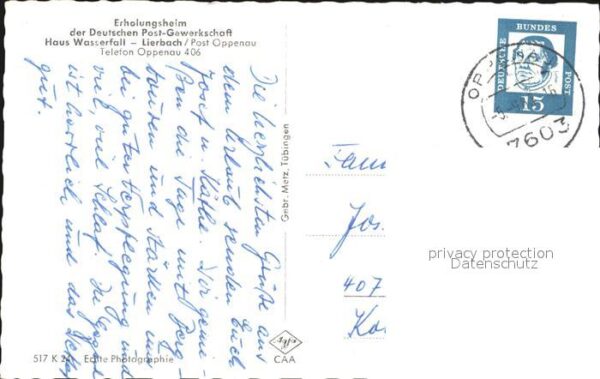 Erholungsheim
der Deutschen Post-Gewerkschaft
Haus Wasserfall – Lierbach / Post Oppenau
Telefon Oppenau 406
Die herzlichsten Grüße aus
dem Urlaub senden Euch
Josef u. Käthe. Wir genie-
ßen die Tage mit Berg-
touren und stärken uns
bei guter Verpflegung und
viel, viel Schlaf. Die Gegend
ist herrlich und das Wetter
gut.
Gebr. Metz, Tübingen
517 K 24 Echte Photographie
Agfa
CAA
DEUTSCHE
BUNDES
POST
15
7603
Fam
Jos.
407
privacy protection
Datenschutz